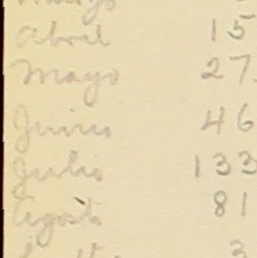 Abril 15
Mayo 27.
Junio 46
Julio 133
Agosto 81
3